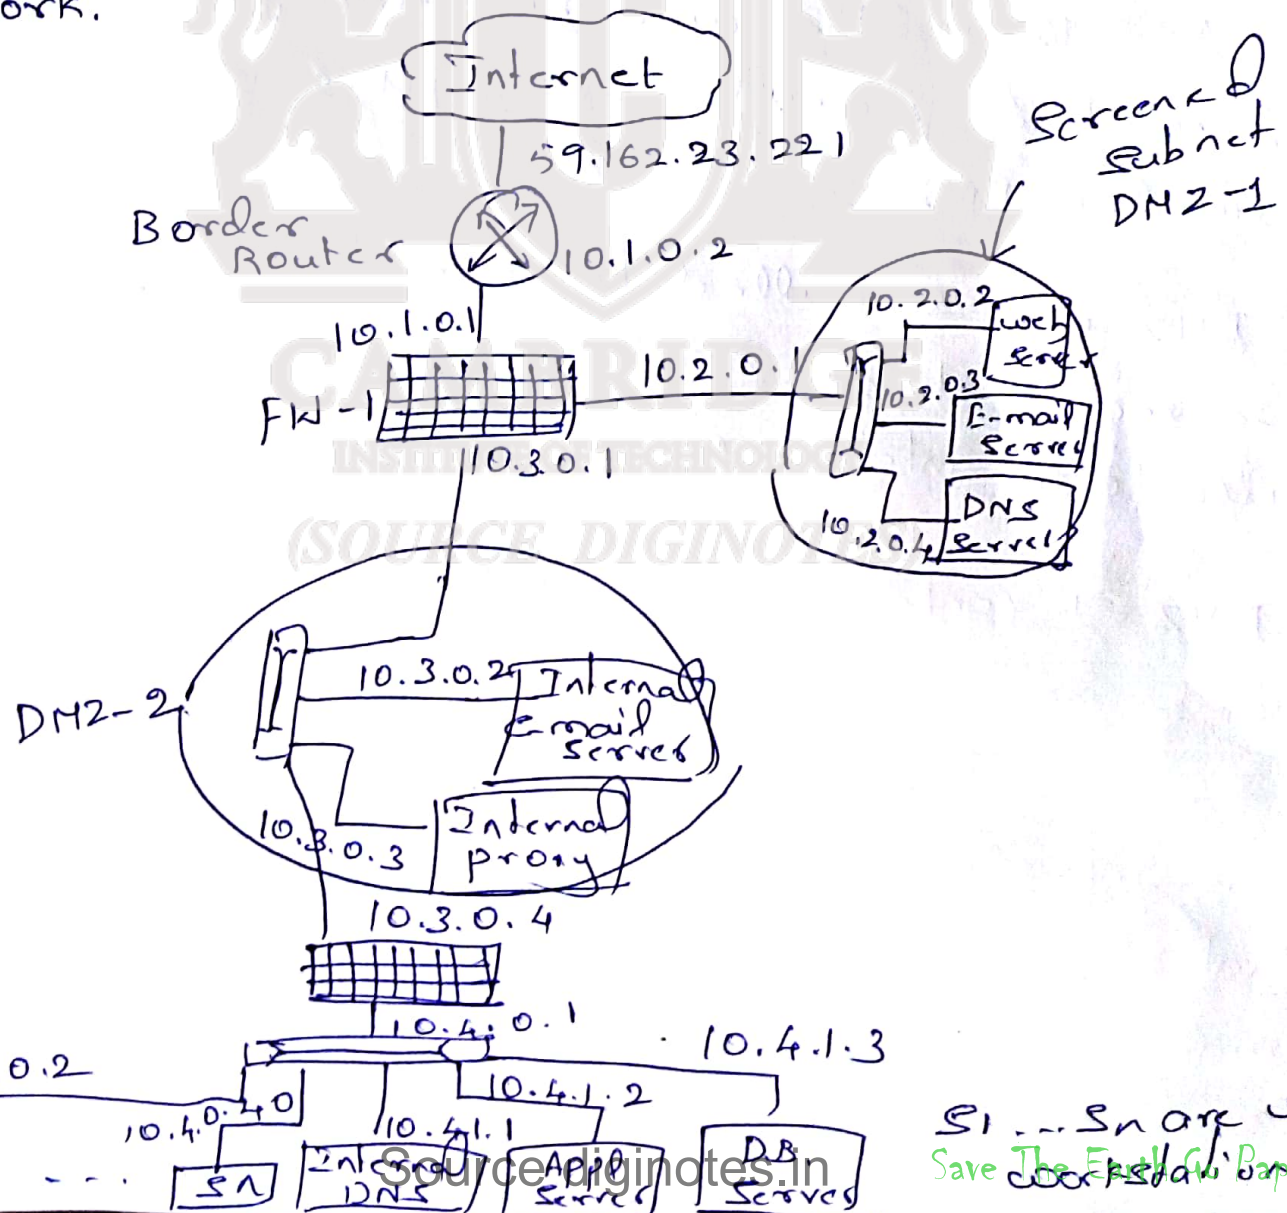 ork.
Internet
59.162.23.221
Border
Router
10.1.0.2
Screened
Subnet
DMZ-1
10.1.0.1
FW-1
10.2.0.1
10.2.0.2
Web
Server
10.2.0.3
E-mail
Server
10.2.0.4
DNS
Server
CAMBRIDGE
INSTITUTE OF TECHNOLOGY
(SOURCE DIGINOTES)
10.3.0.1
DMZ-2
10.3.0.2
Internal
E-mail
Server
10.3.0.3
Internal
proxy
10.3.0.4
10.4.0.1
0.2
10.4.0.40
10.4.1.1
10.4.1.2
10.4.1.3
....
Sn
Internal
DNS
Appl
Server
DB
Server
S1 ... Sn are
workstation
Source diginotes.in
Save The Earth.Go Pap